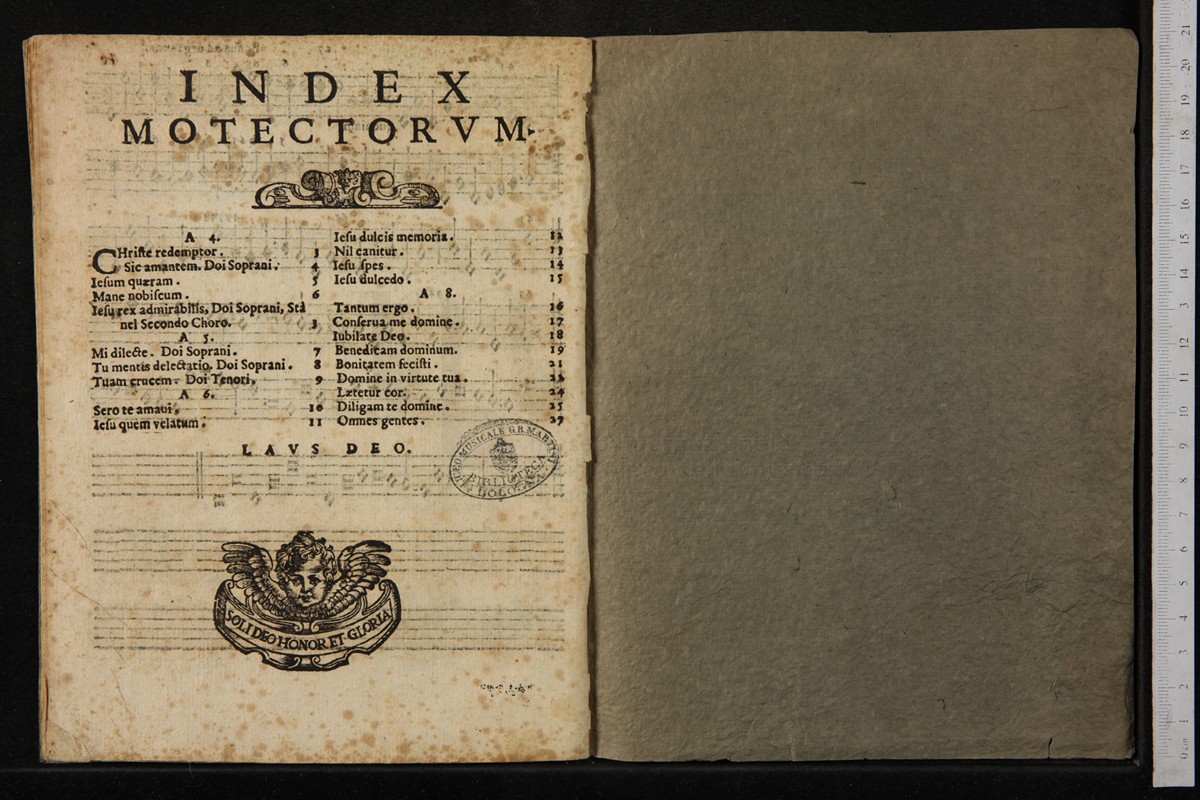 INDEX
MOTECTORVM.
A 4.
CHriste redemptor. 3
Sic amantem. Doi Soprani. 4
Iesum quæram. 5
Mane nobiscum. 6
Iesu rex admirabilis, Doi Soprani, Stà
nel Secondo Choro. 3
A 5.
Mi dilecte. Doi Soprani. 7
Tu mentis delectatio. Doi Soprani. 8
Tuam crucem. Doi Tenori. 9
A 6.
Sero te amaui. 10
Iesu quem velatum. 11
Iesu dulcis memoria. 12
Nil canitur. 13
Iesu spes. 14
Iesu dulcedo. 15
A 8.
Tantum ergo. 16
Conserua me domine. 17
Iubilate Deo. 18
Benedicam dominum. 19
Bonitatem fecisti. 21
Domine in virtute tua. 22
Lætetur cor. 24
Diligam te domine. 25
Omnes gentes. 27
LAVS DEO.
LICEO MUSICALE G.B. MARTINI
BIBLIOTECA
BOLOGNA
SOLI DEO HONOR ET GLORIA
0 cm 1 2 3 4 5 6 7 8 9 10 11 12 13 14 15 16 17 18 19 20 21